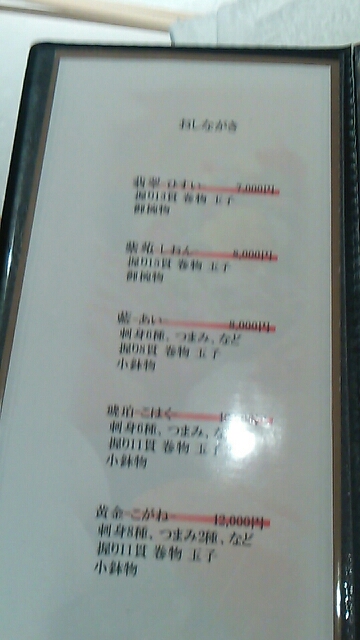 おしながき
翡翠 ひすい 7,000円
握り13貫 巻物 玉子
御椀物
紫苑 しおん 8,000円
握り15貫 巻物 玉子
御椀物
藍 あい 8,000円
刺身6種、つまみ、など
握り8貫 巻物 玉子
小鉢物
琥珀 こはく
刺身6種、つまみ、
握り11貫 巻物 玉子
小鉢物
黄金 こがね 12,000円
刺身8種、つまみ2種、など
握り11貫 巻物 玉子
小鉢物